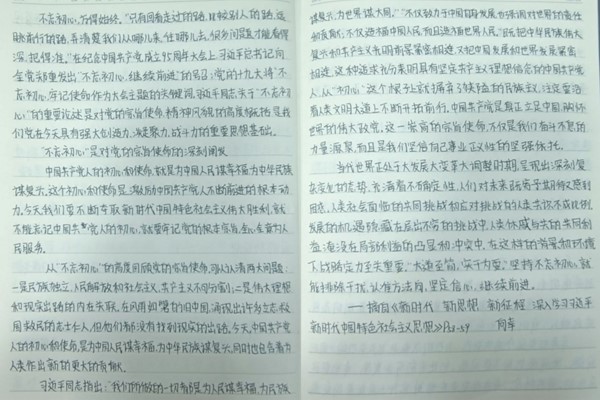 不忘初心,方得始终。"只有回看走过的路、比较别人的路、远
眺前行的路,弄清楚我们从哪儿来、往哪儿去,很多问题才能看得
深,把得准。"在纪念中国共产党成立95周年大会上,习近平总书记向
全党郑重发出"不忘初心,继续前进"的号召;党的十九大将"不
忘初心,牢记使命"作为大会主题的关键词。习近平同志关于"不忘初
心"的重要论述是对党的宗旨使命、精神风貌的高度概括,是我
们党在今天具有强大创造力、凝聚力、战斗力的重要思想基础。
"不忘初心"是对党的宗旨使命的深刻阐发
中国共产党人的初心和使命,就是为中国人民谋幸福,为中华民族
谋复兴。这个初心和使命是激励中国共产党人不断前进的根本动
力。今天,我们要不断夺取新时代中国特色社会主义伟大胜利,就
不能忘记中国共产党人的初心,就要牢记党的根本宗旨,全心全意为人
民服务。
从"不忘初心"的高度回顾党的宗旨使命,可以认清两大问题:
一是民族独立、人民解放和社会主义、共产主义不可分割;一是伟大理想
和现实出路的内在关联。在风雨如磐的旧中国,涌现出许多立志救
国救民的志士仁人,但他们都没有找到现实的出路。今天,中国共产党
人的初心和使命,是为中国人民谋幸福,为中华民族谋复兴,同时也包含着为
人类作出新的更大的贡献。
习近平同志指出:"我们所做的一切都是为人民谋幸福,为民族
谋复兴,为世界谋大同。""不仅致力于中国自身发展,也强调对世界的责任
和贡献;不仅造福中国人民,而且造福世界人民。"既把中华民族伟大
复兴和共产主义文明前景紧密相连,又把中国发展和世界发展紧密
相连,这种追求充分表明具有坚定共产主义理想信念的中国共产党
人,从"初心"这个源头就摒弃了狭隘的民族主义,注定要沿
着人类文明大道上不断开拓前行。中国共产党是真正立足中国、胸怀
世界的伟大政党。这一崇高的宗旨使命,不仅是我们奋斗不息的
力量源泉,而且是我们坚信自己事业正义性的坚强依托。
当代世界正处于大发展大变革大调整时期,呈现出深刻复
杂变化的态势,充满着不确定性,人们对未来既寄予期待又感到
困惑。人类社会面临的共同挑战和应对挑战的人类合作不成比例,
发展的机遇隐藏在层出不穷的挑战中,人类休戚与共的共同利
益淹没在局部利益的凸显和冲突中。在这样的背景和环境
下,战略定力至关重要。"大道至简,实干为要。"坚持不忘初心,就
能排除干扰、认准方法、坚定信心、继续前进。
——摘自《新时代 新思想 新征程 深入学习习近平
新时代中国特色社会主义思想》P21-29